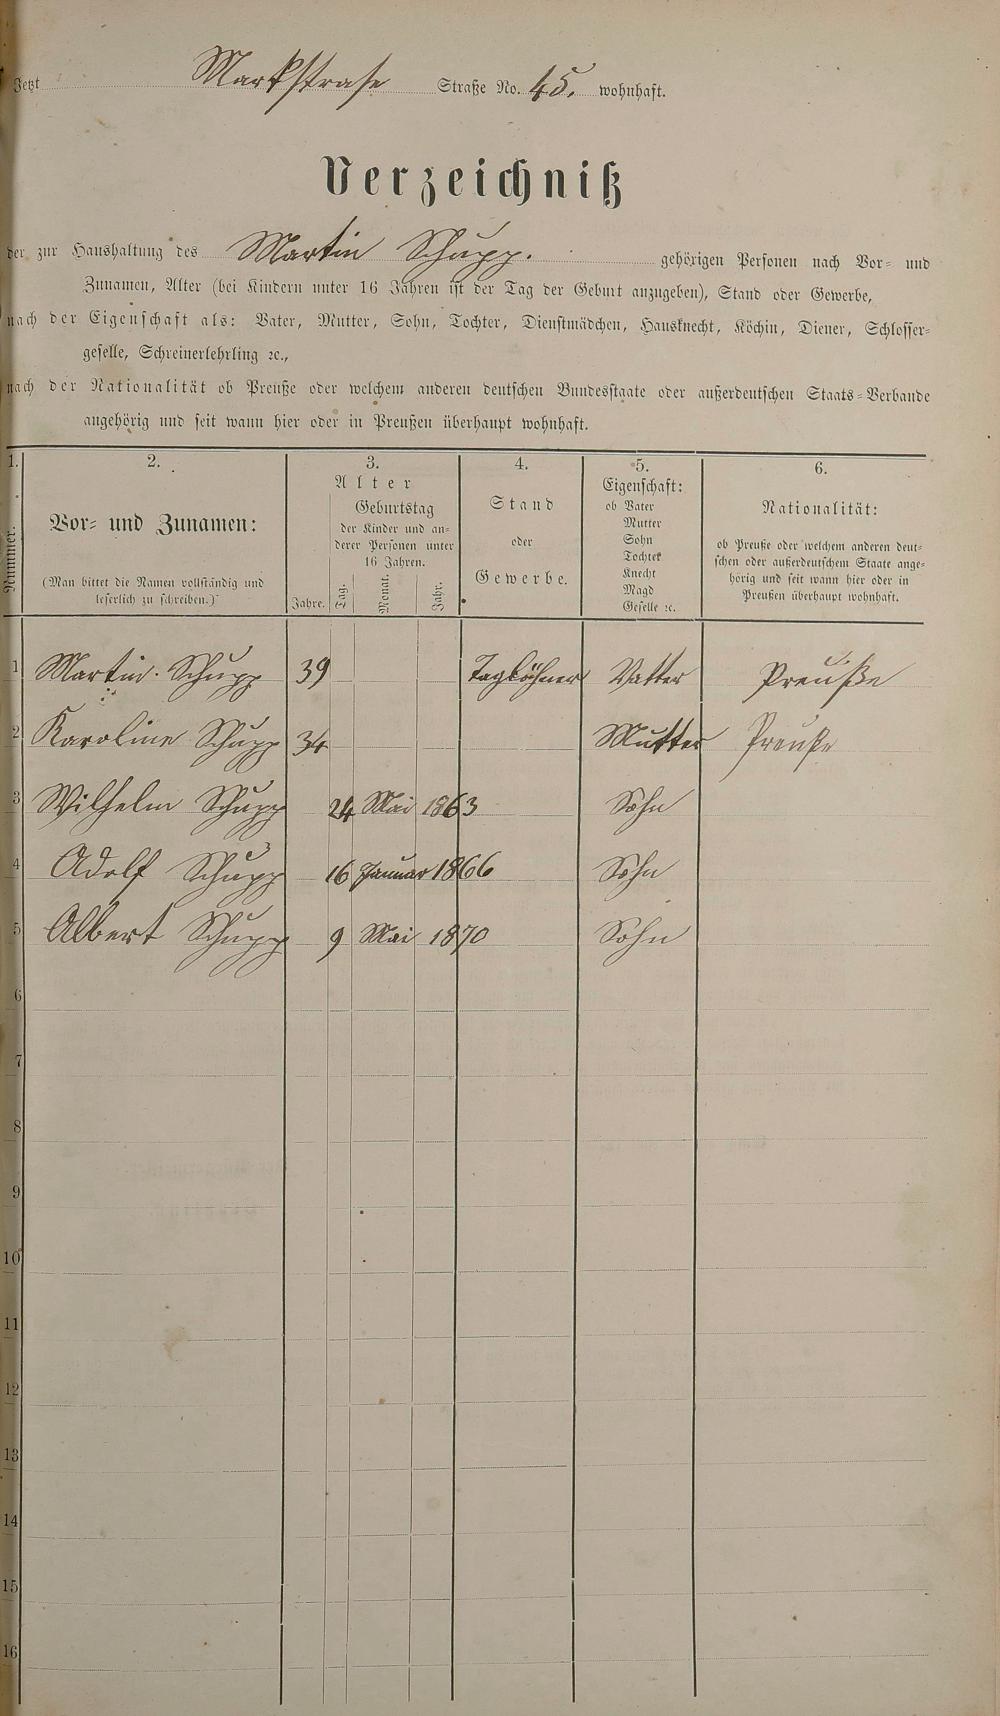 Jetzt Markstrase Straße No. 45. wohnhaft.
Verzeichniß
der zur Haushaltung des Martin Schupp. gehörigen Personen nach Vor- und
Zunamen, Alter (bei Kindern unter 16 Jahren ist der Tag der Geburt anzugeben), Stand oder Gewerbe,
nach der Eigenschaft als: Vater, Mutter, Sohn, Tochter, Dienstmädchen, Hausknecht, Köchin, Diener, Schlosser-
geselle, Schreinerlehrling ꝛc.,
nach der Nationalität ob Preuße oder welchem anderen deutschen Bundesstaate oder außerdeutschen Staats-Verbande
angehörig und seit wann hier oder in Preußen überhaupt wohnhaft.
1. 2. 3. 4. 5. 6.
Nummer.
Vor- und Zunamen:
(Man bittet die Namen vollständig und
leserlich zu schreiben.)
Alter
Geburtstag
der Kinder und an-
derer Personen unter
16 Jahren.
Jahre. Tag. Monat. Jahr.
Stand
oder
Gewerbe.
Eigenschaft:
ob Vater
Mutter
Sohn
Tochter
Knecht
Magd
Geselle ꝛc.
Nationalität:
ob Preuße oder welchem anderen deut-
schen oder außerdeutschem Staate ange-
hörig und seit wann hier oder in
Preußen überhaupt wohnhaft.
1 Martin Schupp 39 Taglöhner Vatter Preuße
2 Karoline Schupp 34 Mutter Preuße
3 Wilhelm Schupp 24 Mai 1863 Sohn
4 Adolf Schupp 16 Januar 1866 Sohn
5 Albert Schupp 9 Mai 1870 Sohn
6
7
8
9
10
11
12
13
14
15
16